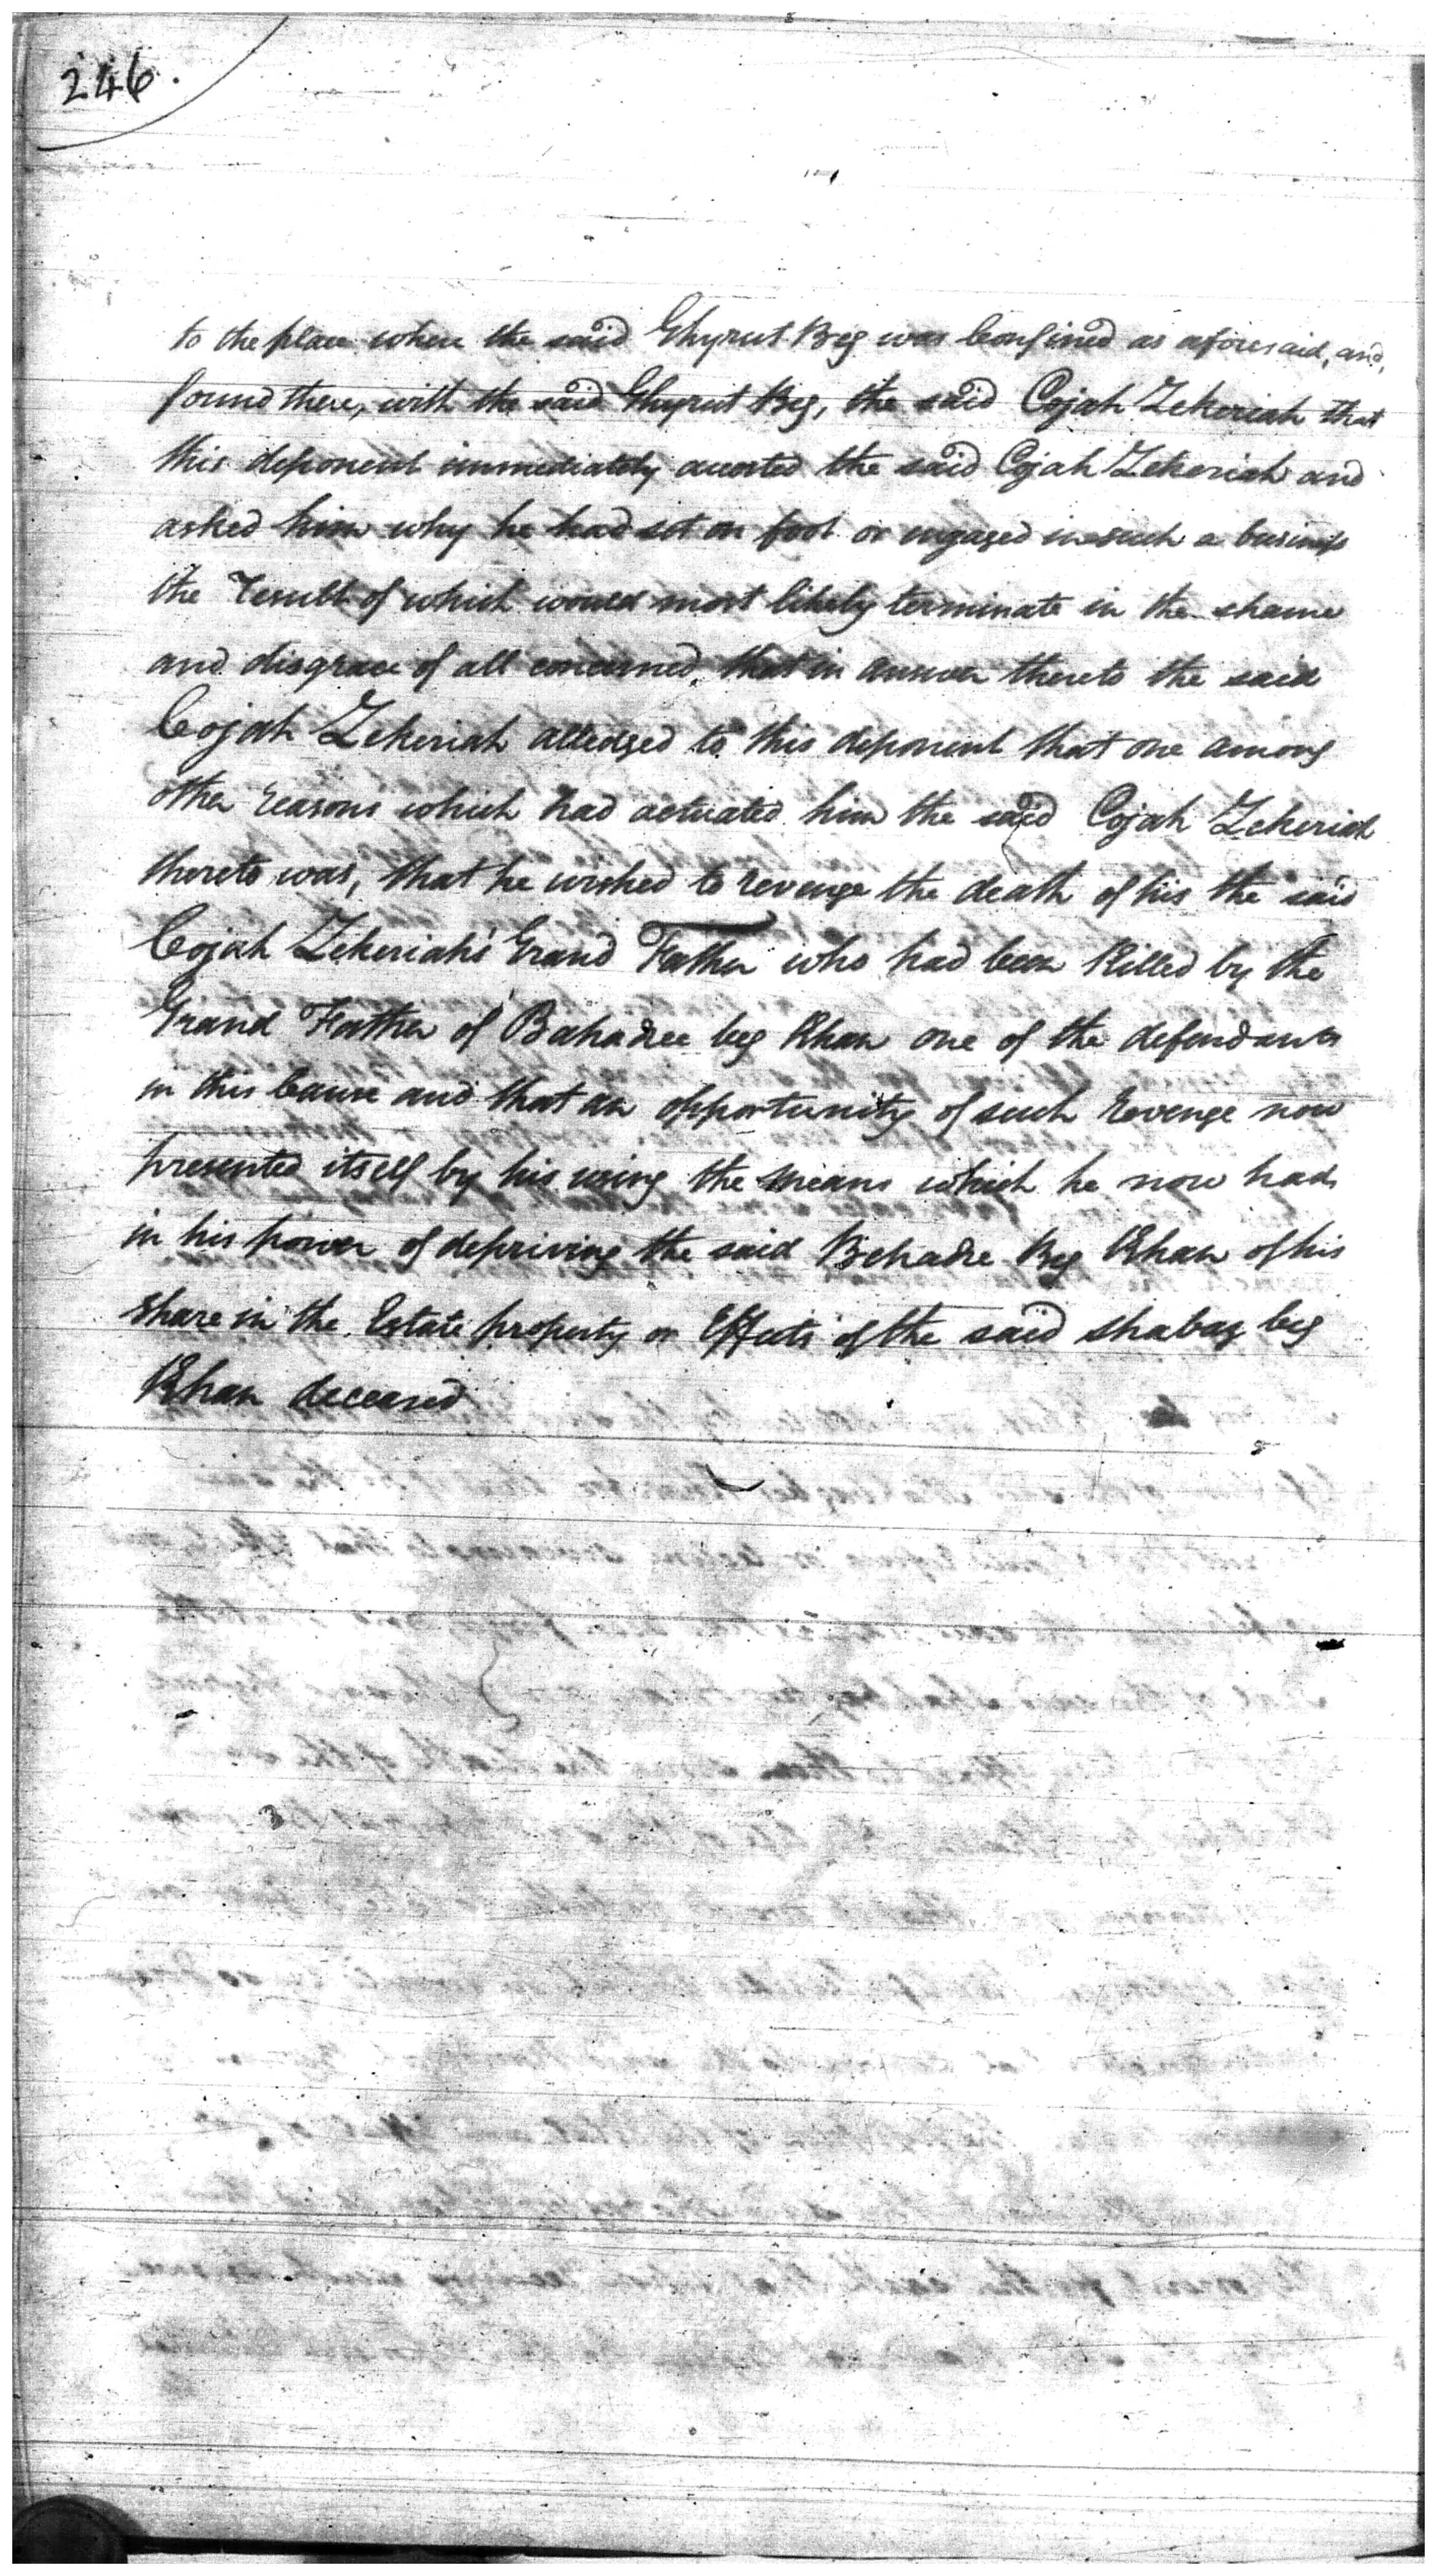 246.
to the place where the said Ghyrut Beg was Confined as aforesaid, and,
found there, with the said Ghyrut Beg, the said Cojah Zekeriah that
this deponent immediately accosted the said Cojah Zekeriah and
asked him why he had set on foot or engaged in such a business
the result of which would most likely terminate in the shame
and disgrace of all concerned, that in answer thereto the said
Cojah Zekeriah alledged to this deponent that one among
other reasons which had actuated him the said Cojah Zekeriah
thereto was, that he wished to revenge the death of his the said
Cojah Zekeriah's Grand Father who had been Killed by the
Grand Father of Bahadree beg Khan one of the defendants
in this Cause and that an opportunity of such revenge now
presented itself by his using the means which he now had
in his power of depriving the said Behadre Beg Khan of his
share in the Estate property or Effects of the said shabaz beg
Khan deceased